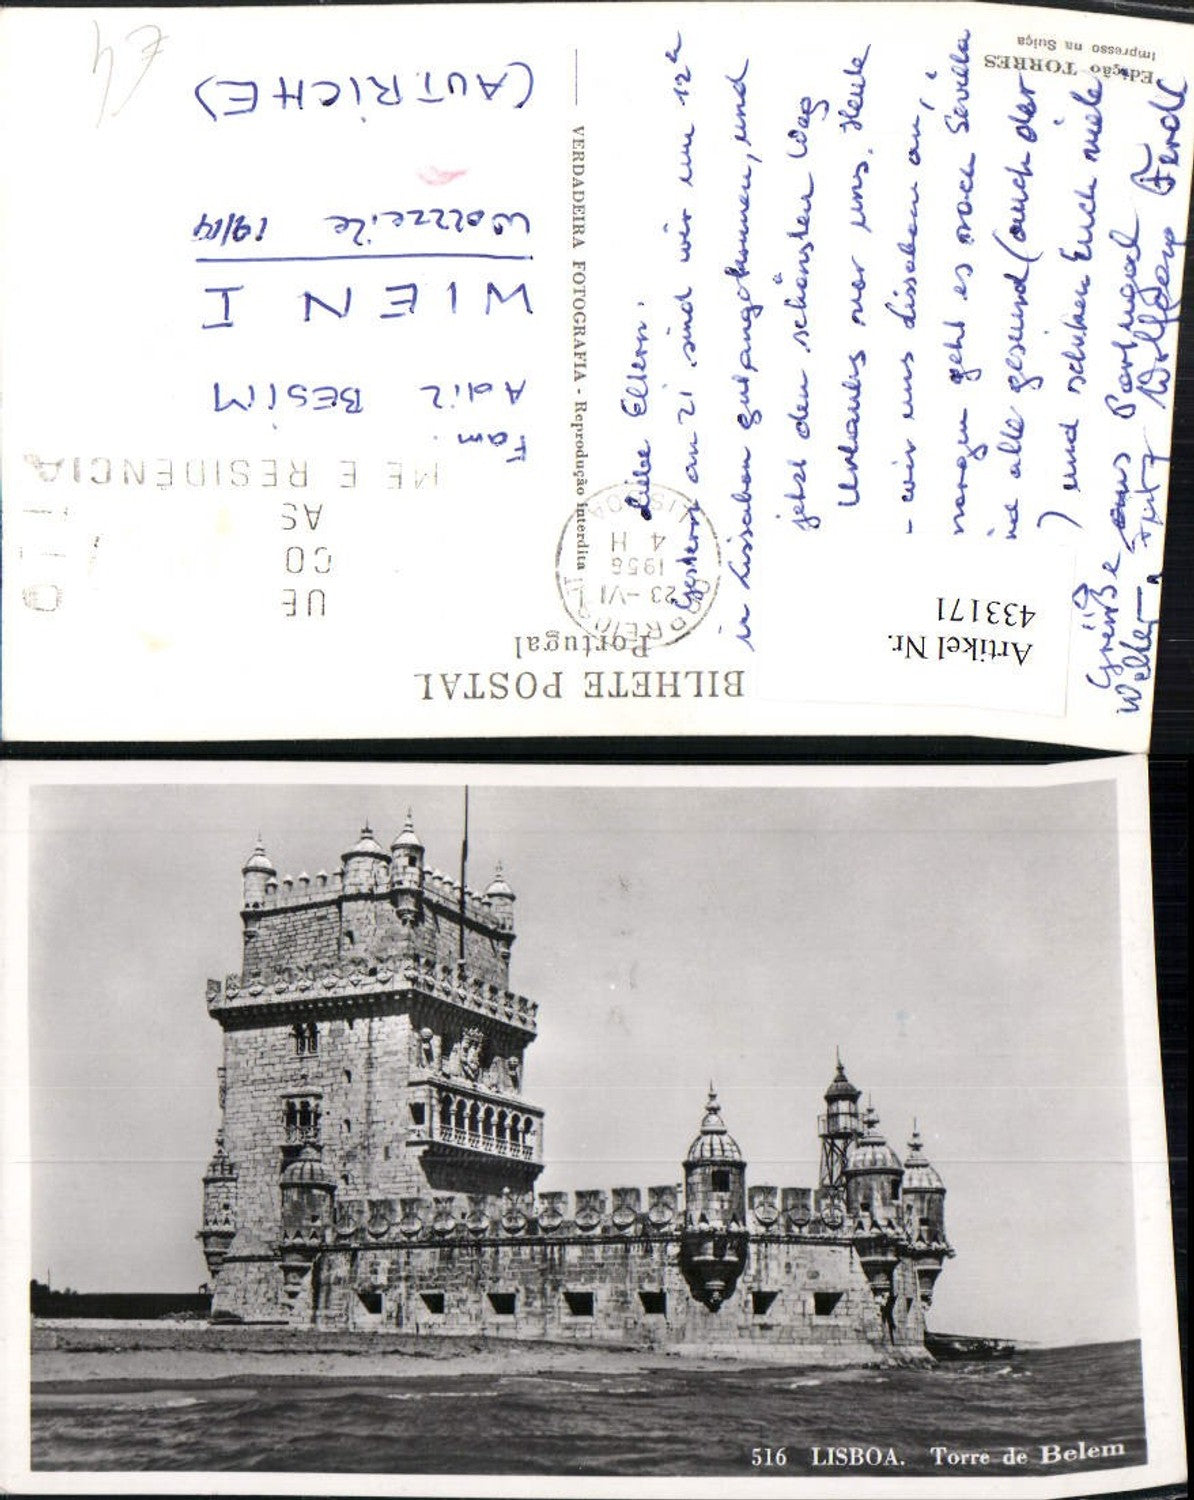 BILHETE POSTAL
Portugal
CORREIOS
23-VI
1956
4 H
LISBOA
UE
CO
AS
ME E RESIDENCIA
VERDADEIRA FOTOGRAFIA - Reprodução interdita
Fam.
Adil BESIM
WIEN I
Wollzeile 19/14
(AUTRICHE)
Artikel Nr.
433171
Edição TORRES
Impresso na Suiça
Liebe Eltern!
Gestern an 21 sind wir um 12h
in Lissabon gut angekommen, und
jetzt den schönsten Weg
Urlaubs vor uns. Heute
- wir uns Lissabon an,
morgen geht es nach Sevilla
alle gesund (auch der
) und schicken Euch viele
Grüße aus Portugal
Walter, Fritz Wolfgang Ferdl
516 LISBOA. Torre de Belem